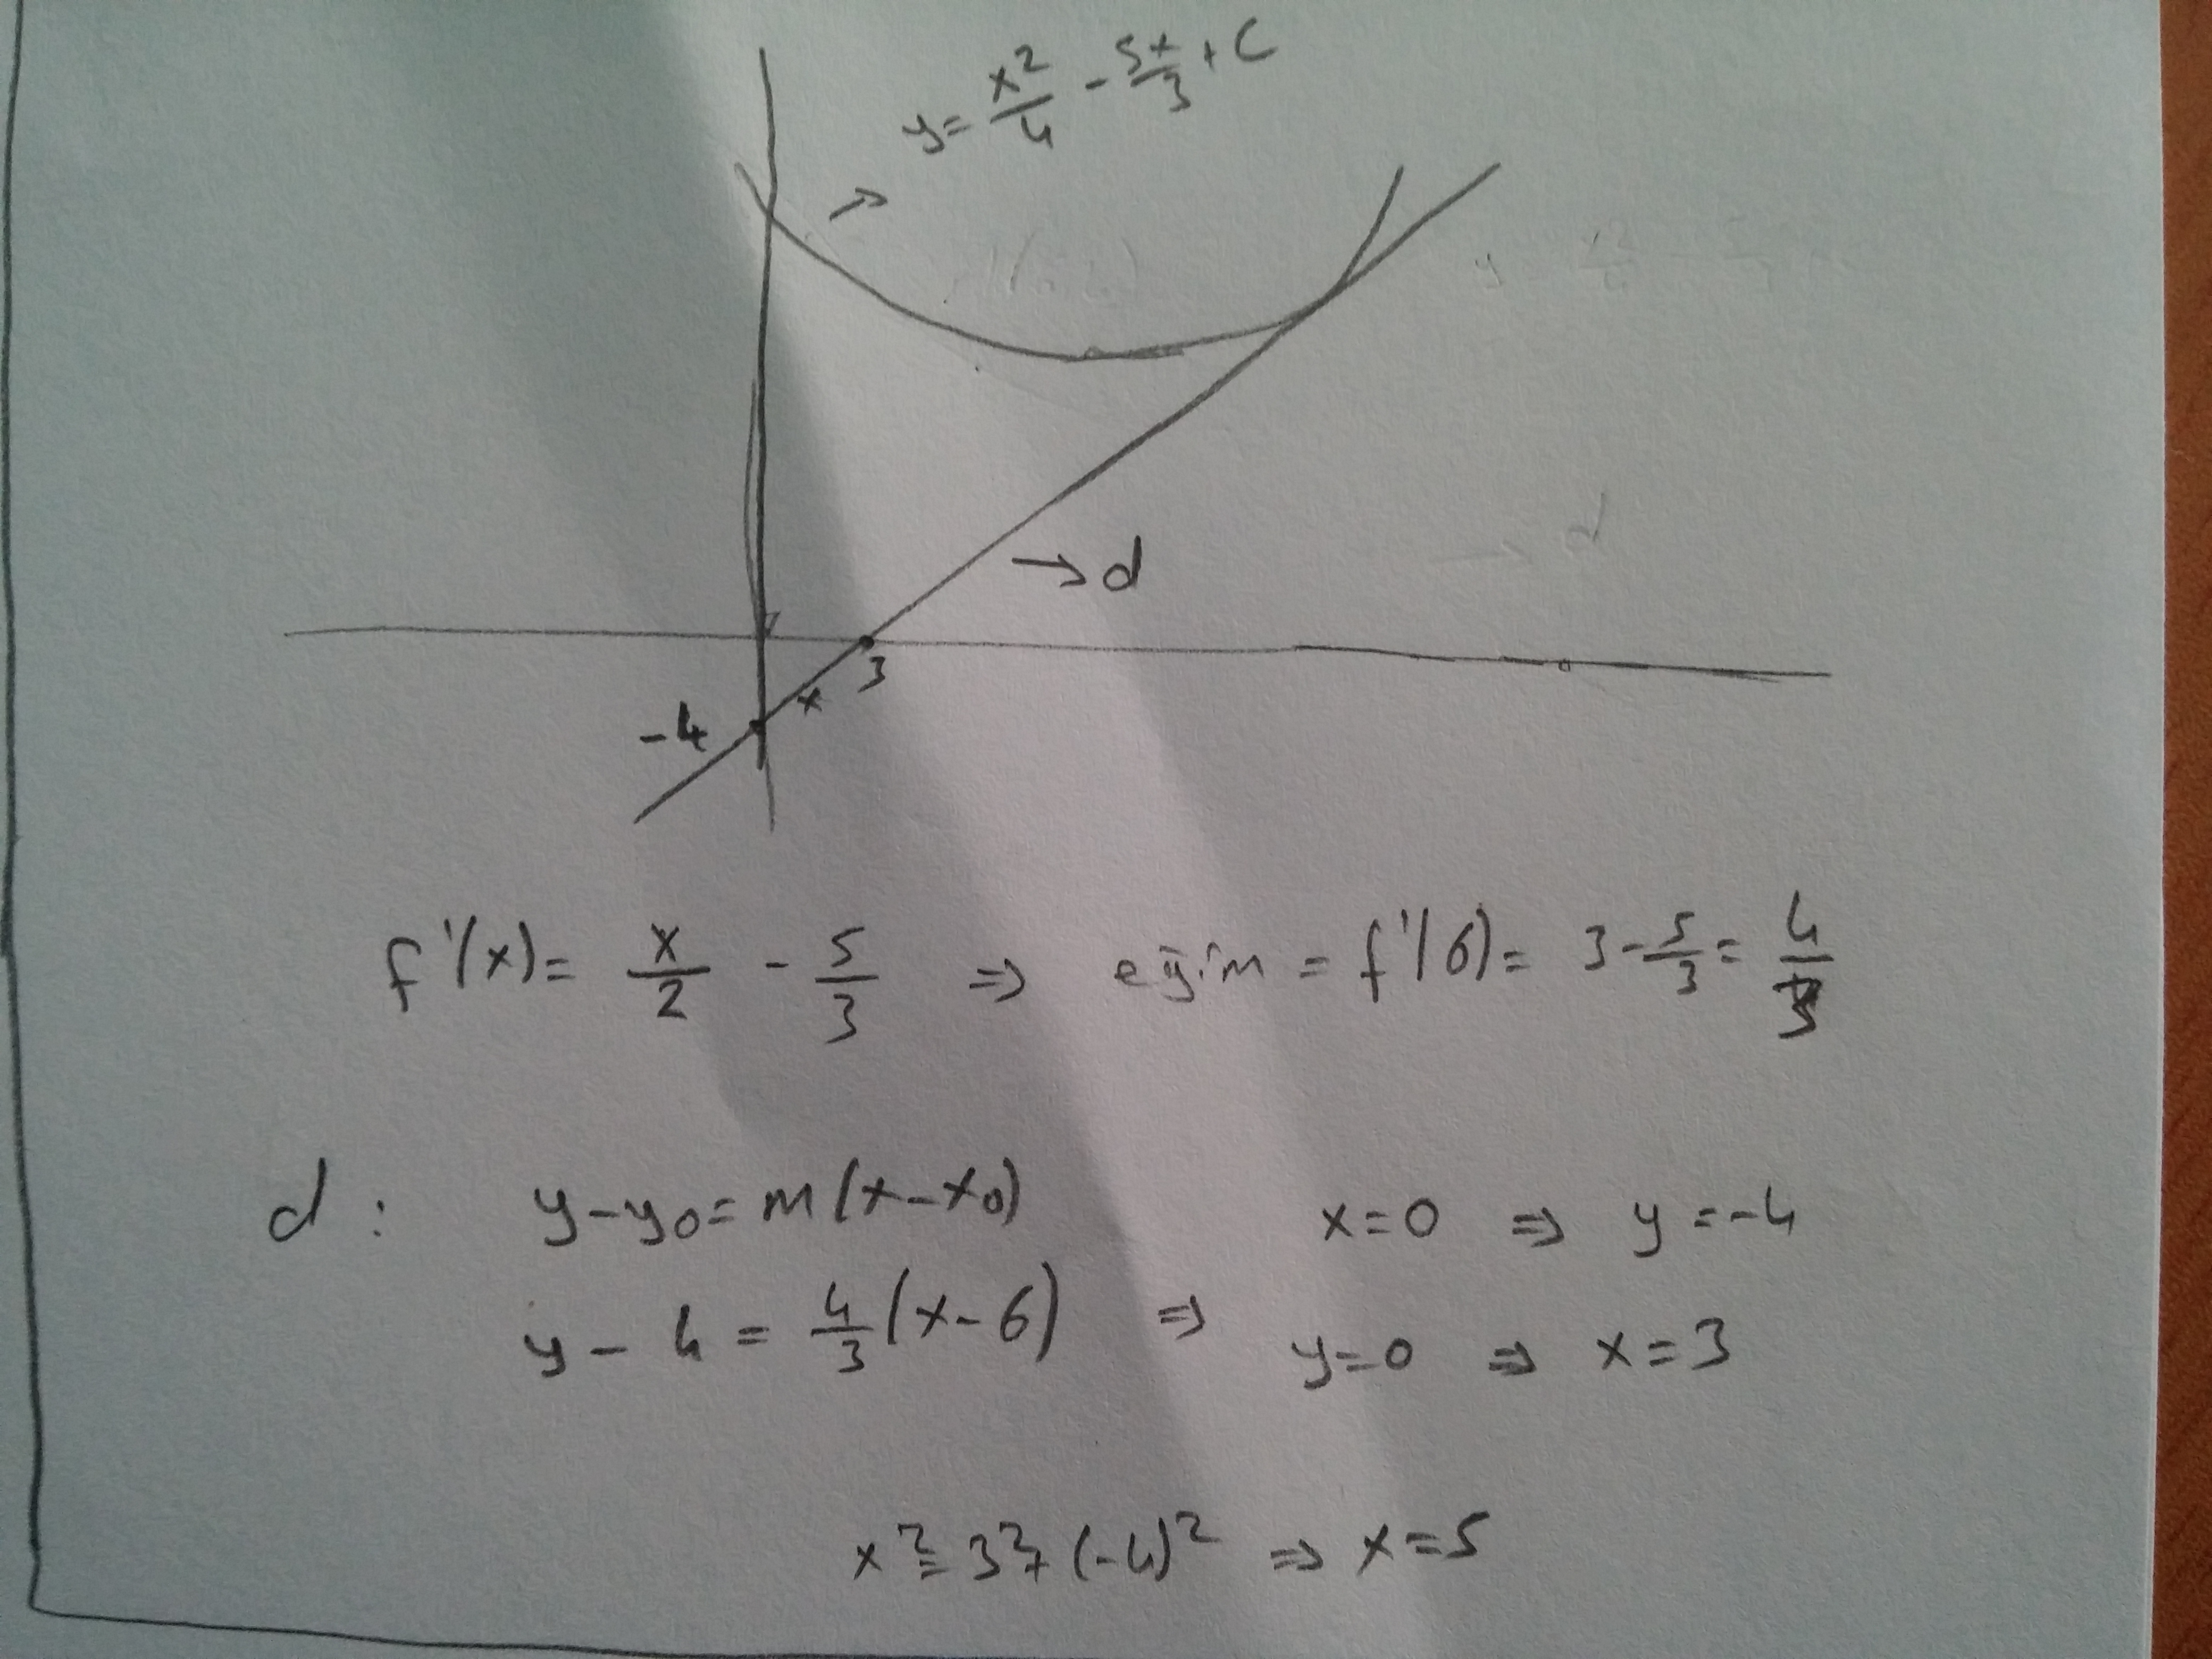 y = x²/4 - 5x/3 + C
→ d
3
x
-4
f'(x) = x/2 - 5/3 ⇒ eğim = f'(6) = 3 - 5/3 = 4/3
d : y - y₀ = m(x - x₀)
x = 0 ⇒ y = -4
y - 4 = 4/3 (x - 6) ⇒
y = 0 ⇒ x = 3
x² = 3² + (-4)² ⇒ x = 5